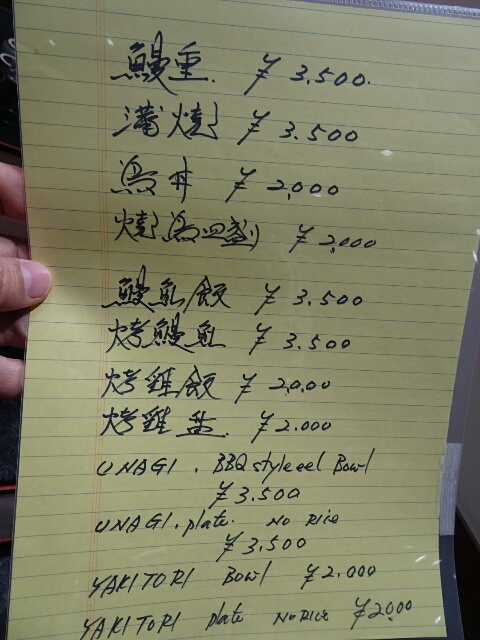 鰻重. ¥3.500.
蒲焼 ¥3.500
鳥丼 ¥2,000
焼鳥皿盛り ¥2,000
鰻魚飯 ¥3.500
烤鰻魚 ¥3.500
烤雞飯 ¥20.00
烤雞盐 ¥2.000
UNAGI . BBQ style eel Bowl
¥3.500
UNAGI. plate. No Rice
¥3.500
YAKITORI Bowl ¥2.000
YAKITORI plate No Rice ¥2000